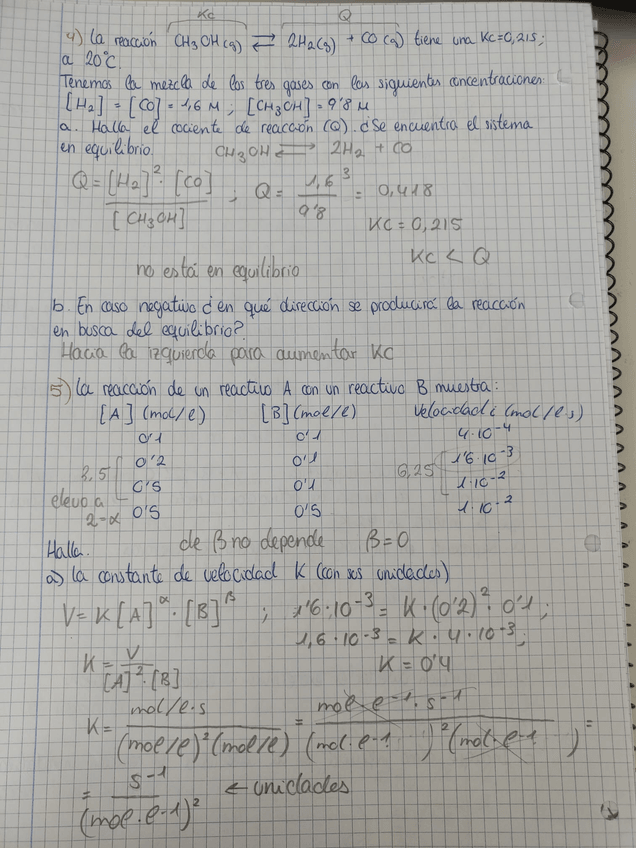 Kc Q
4) La reacción CH3OH(g) ⇄ 2H2(g) + CO(g) tiene una Kc=0,215;
a 20°C.
Tenemos la mezcla de los tres gases con las siguientes concentraciones:
[H2] = [CO] = 1,6 M ; [CH3OH] = 9'8 M
a. Halla el cociente de reacción (Q). ¿Se encuentra el sistema
en equilibrio. CH3OH ⇄ 2H2 + CO
Q = [H2]²·[CO] / [CH3OH] ; Q = 1,6³ / 9'8 = 0,418
Kc = 0,215
Kc < Q
no está en equilibrio
b. En caso negativo ¿en qué dirección se producirá la reacción
en busca del equilibrio?
Hacia la izquierda para aumentar Kc
5) La reacción de un reactivo A con un reactivo B muestra:
[A] (mol/l) [B] (mol/l) Velocidad i (mol/l·s)
0'1 0'1 4·10-4
0'2 0'1 1'6·10-3
2,5 0'5 0'1 6,25 1·10-2
elevo a 2=α 0'5 0'5 1·10-2
Halla. de β no depende β=0
a) La constante de velocidad K (con sus unidades)
V = K[A]^α · [B]^β ; 1'6·10-3 = K·(0'2)²·0'1;
1,6·10-3 = K·4·10-3;
K = V / [A]²·[B] K = 0'4
K = mol/l·s / (mol/l)²(mol/l) = mol·l-1·s-1 / (mol·l-1)²(mol·l-1) =
= s-1 / (mol·l-1)² ← unidades